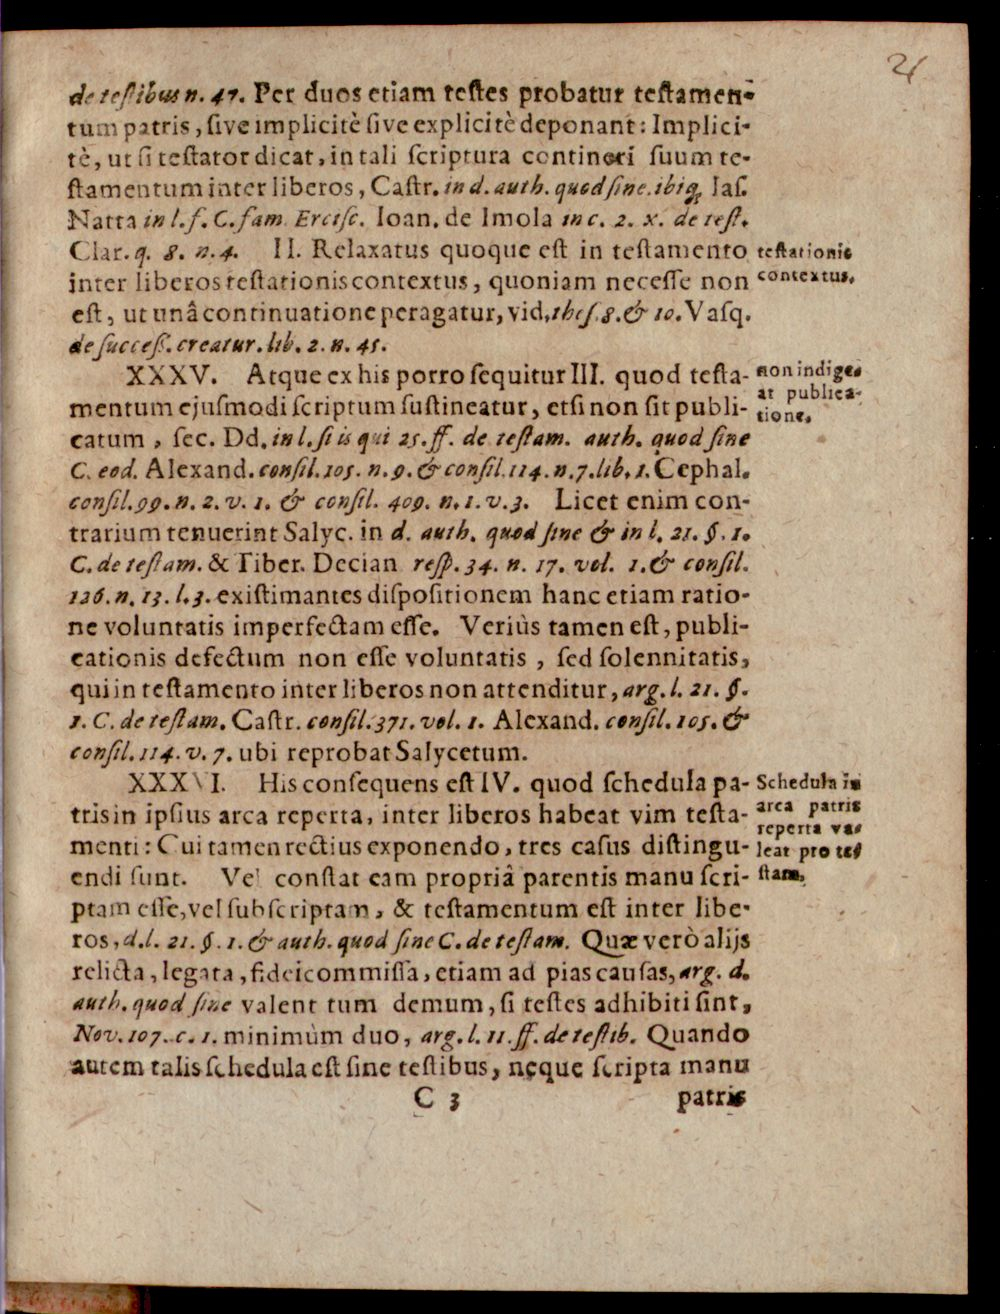 21
de testibus n. 47. Per duos etiam testes probatur testamen-
tum patris, sive implicitè sive explicitè deponant: Implici-
tè, ut si testator dicat, in tali scriptura contineri suum te-
stamentum inter liberos, Castr. in d. auth. quod sine. ibiq; Jas.
Natta in l. f. C. fam. Ercisc. Ioan. de Imola in c. 2. x. de test.
Clar. q. 8. n. 4. II. Relaxatus quoque est in testamento
testationis
inter liberos testationis contextus, quoniam necesse non
contextus.
est, ut unâ continuatione peragatur, vid. thes. 8. & 10. Vasq.
de success. creatur. lib. 2. n. 45.
XXXV. Atque ex his porro sequitur III. quod testa-
non indige-
mentum ejusmodi scriptum sustineatur, etsi non sit publi-
at publica-
tione.
catum, sec. Dd. in l. si is qui 25. ff. de testam. auth. quod sine
C. eod. Alexand. consil. 105. n. 9. & consil. 114. n. 7. lib. 1. Cephal.
consil. 99. n. 2. v. 1. & consil. 409. n. 1. v. 3. Licet enim con-
trarium tenuerint Salyc. in d. auth. quod sine & in l. 21. §. 1.
C. de testam. & Tiber. Decian resp. 34. n. 17. vol. 1. & consil.
126. n. 13. l. 3. existimantes dispositionem hanc etiam ratio-
ne voluntatis imperfectam esse. Veriùs tamen est, publi-
cationis defectum non esse voluntatis, sed solennitatis,
qui in testamento inter liberos non attenditur, arg. l. 21. §.
1. C. de testam. Castr. consil. 371. vol. 1. Alexand. consil. 105. &
consil. 114. v. 7. ubi reprobat Salycetum.
XXXVI. His consequens est IV. quod schedula pa-
Schedula in
tris in ipsius arca reperta, inter liberos habeat vim testa-
arca patris
reperta va-
menti: Cui tamen rectius exponendo, tres casus distingu-
leat pro tes
endi sunt. Vel constat eam propriâ parentis manu scri-
stam.
ptam esse, vel subscriptam, & testamentum est inter libe-
ros, d. l. 21. §. 1. & auth. quod sine C. de testam. Quæ verò alijs
relicta, legata, fideicommissa, etiam ad pias causas, arg. d.
auth. quod sine valent tum demum, si testes adhibiti sint,
Nov. 107. c. 1. minimùm duo, arg. l. 11. ff. de testib. Quando
autem talis schedula est sine testibus, neque scripta manu
C 3
patris